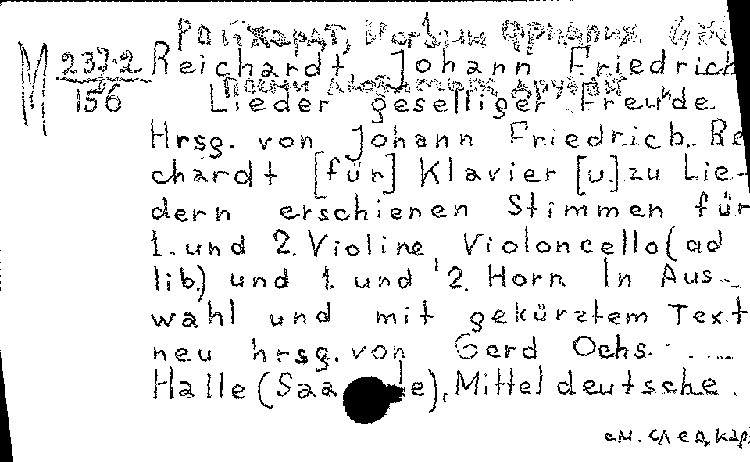 Райхардт, Иоганн Фридрих
M 237-2
156
Reichardt Johann Friedrich
Песни
Lieder geselliger Freude.
Hrsg. von Johann Friedrich Re
chardt [für] Klavier [u.] zu Lie-
dern erschienen Stimmen für
1. und 2. Violine Violoncello (ad
lib.) und 1. und 2. Horn In Aus-
wahl und mit gekürztem Text
neu hrsg. von Gerd Ochs.
Halle (Saa e), Mitteldeutsche.
см. след. кар